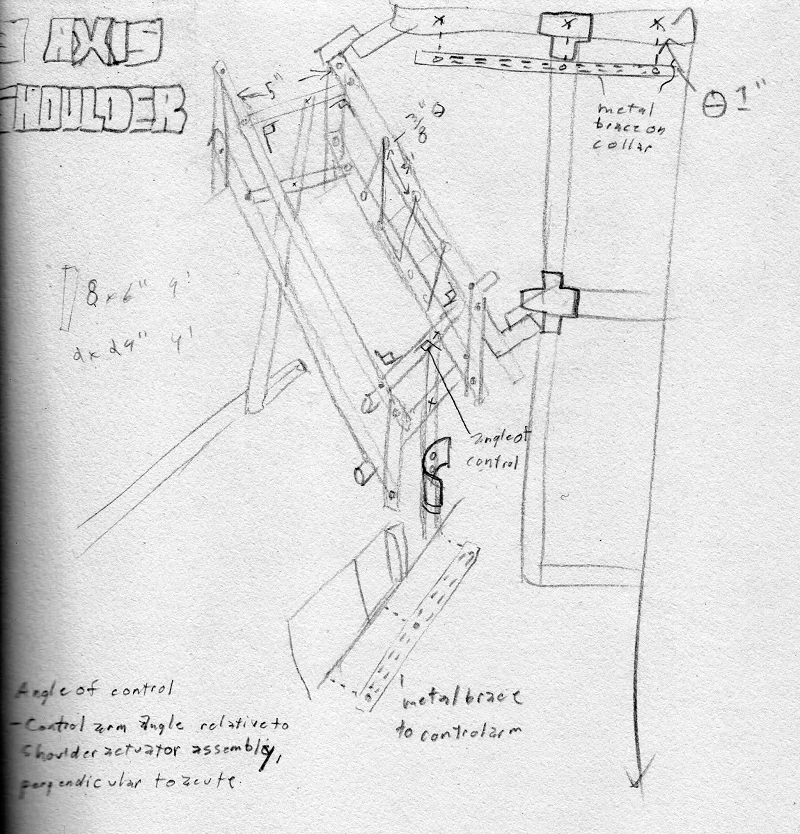 AXIS
SHOULDER
5"
3/8" ⊖
⊖ 1"
metal
brace on
collar
8 x 6" 9'
2x 29" 4'
angle of
control
metal brace
to control arm
Angle of control
- Control arm angle relative to
shoulder actuator assembly,
perpendicular to acute.